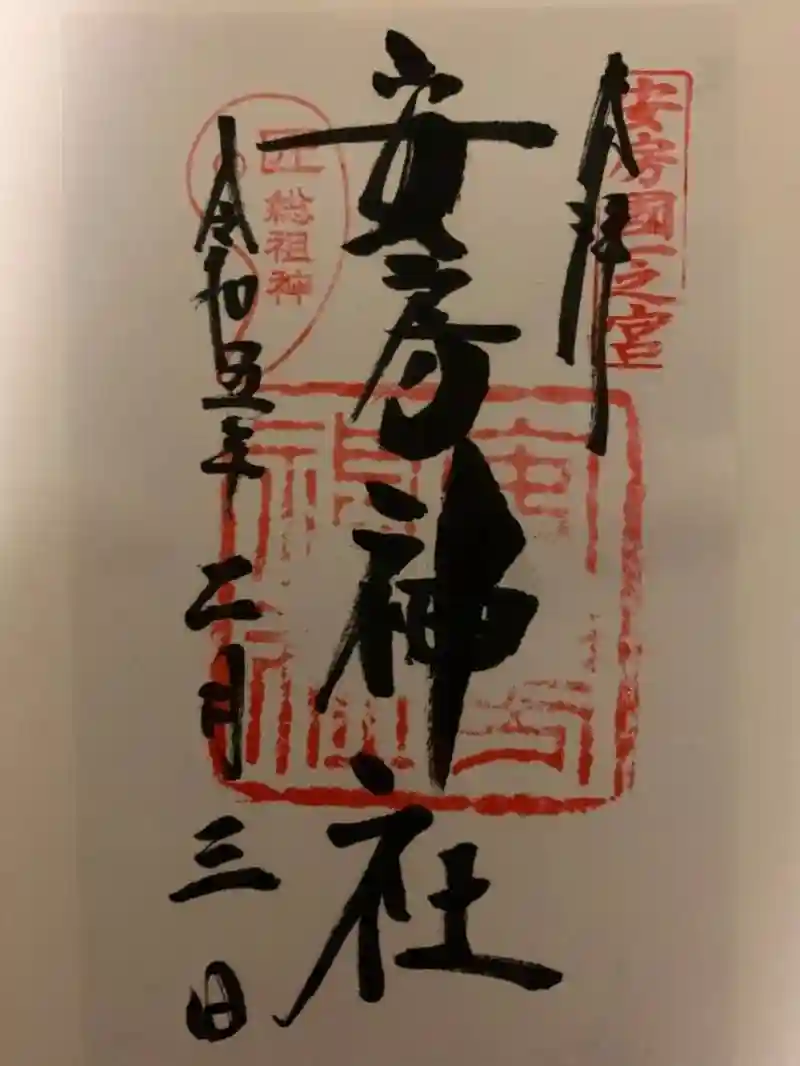 安房國一之宮
奉拝
安房神社
匠総祖神
令和五年二月三日